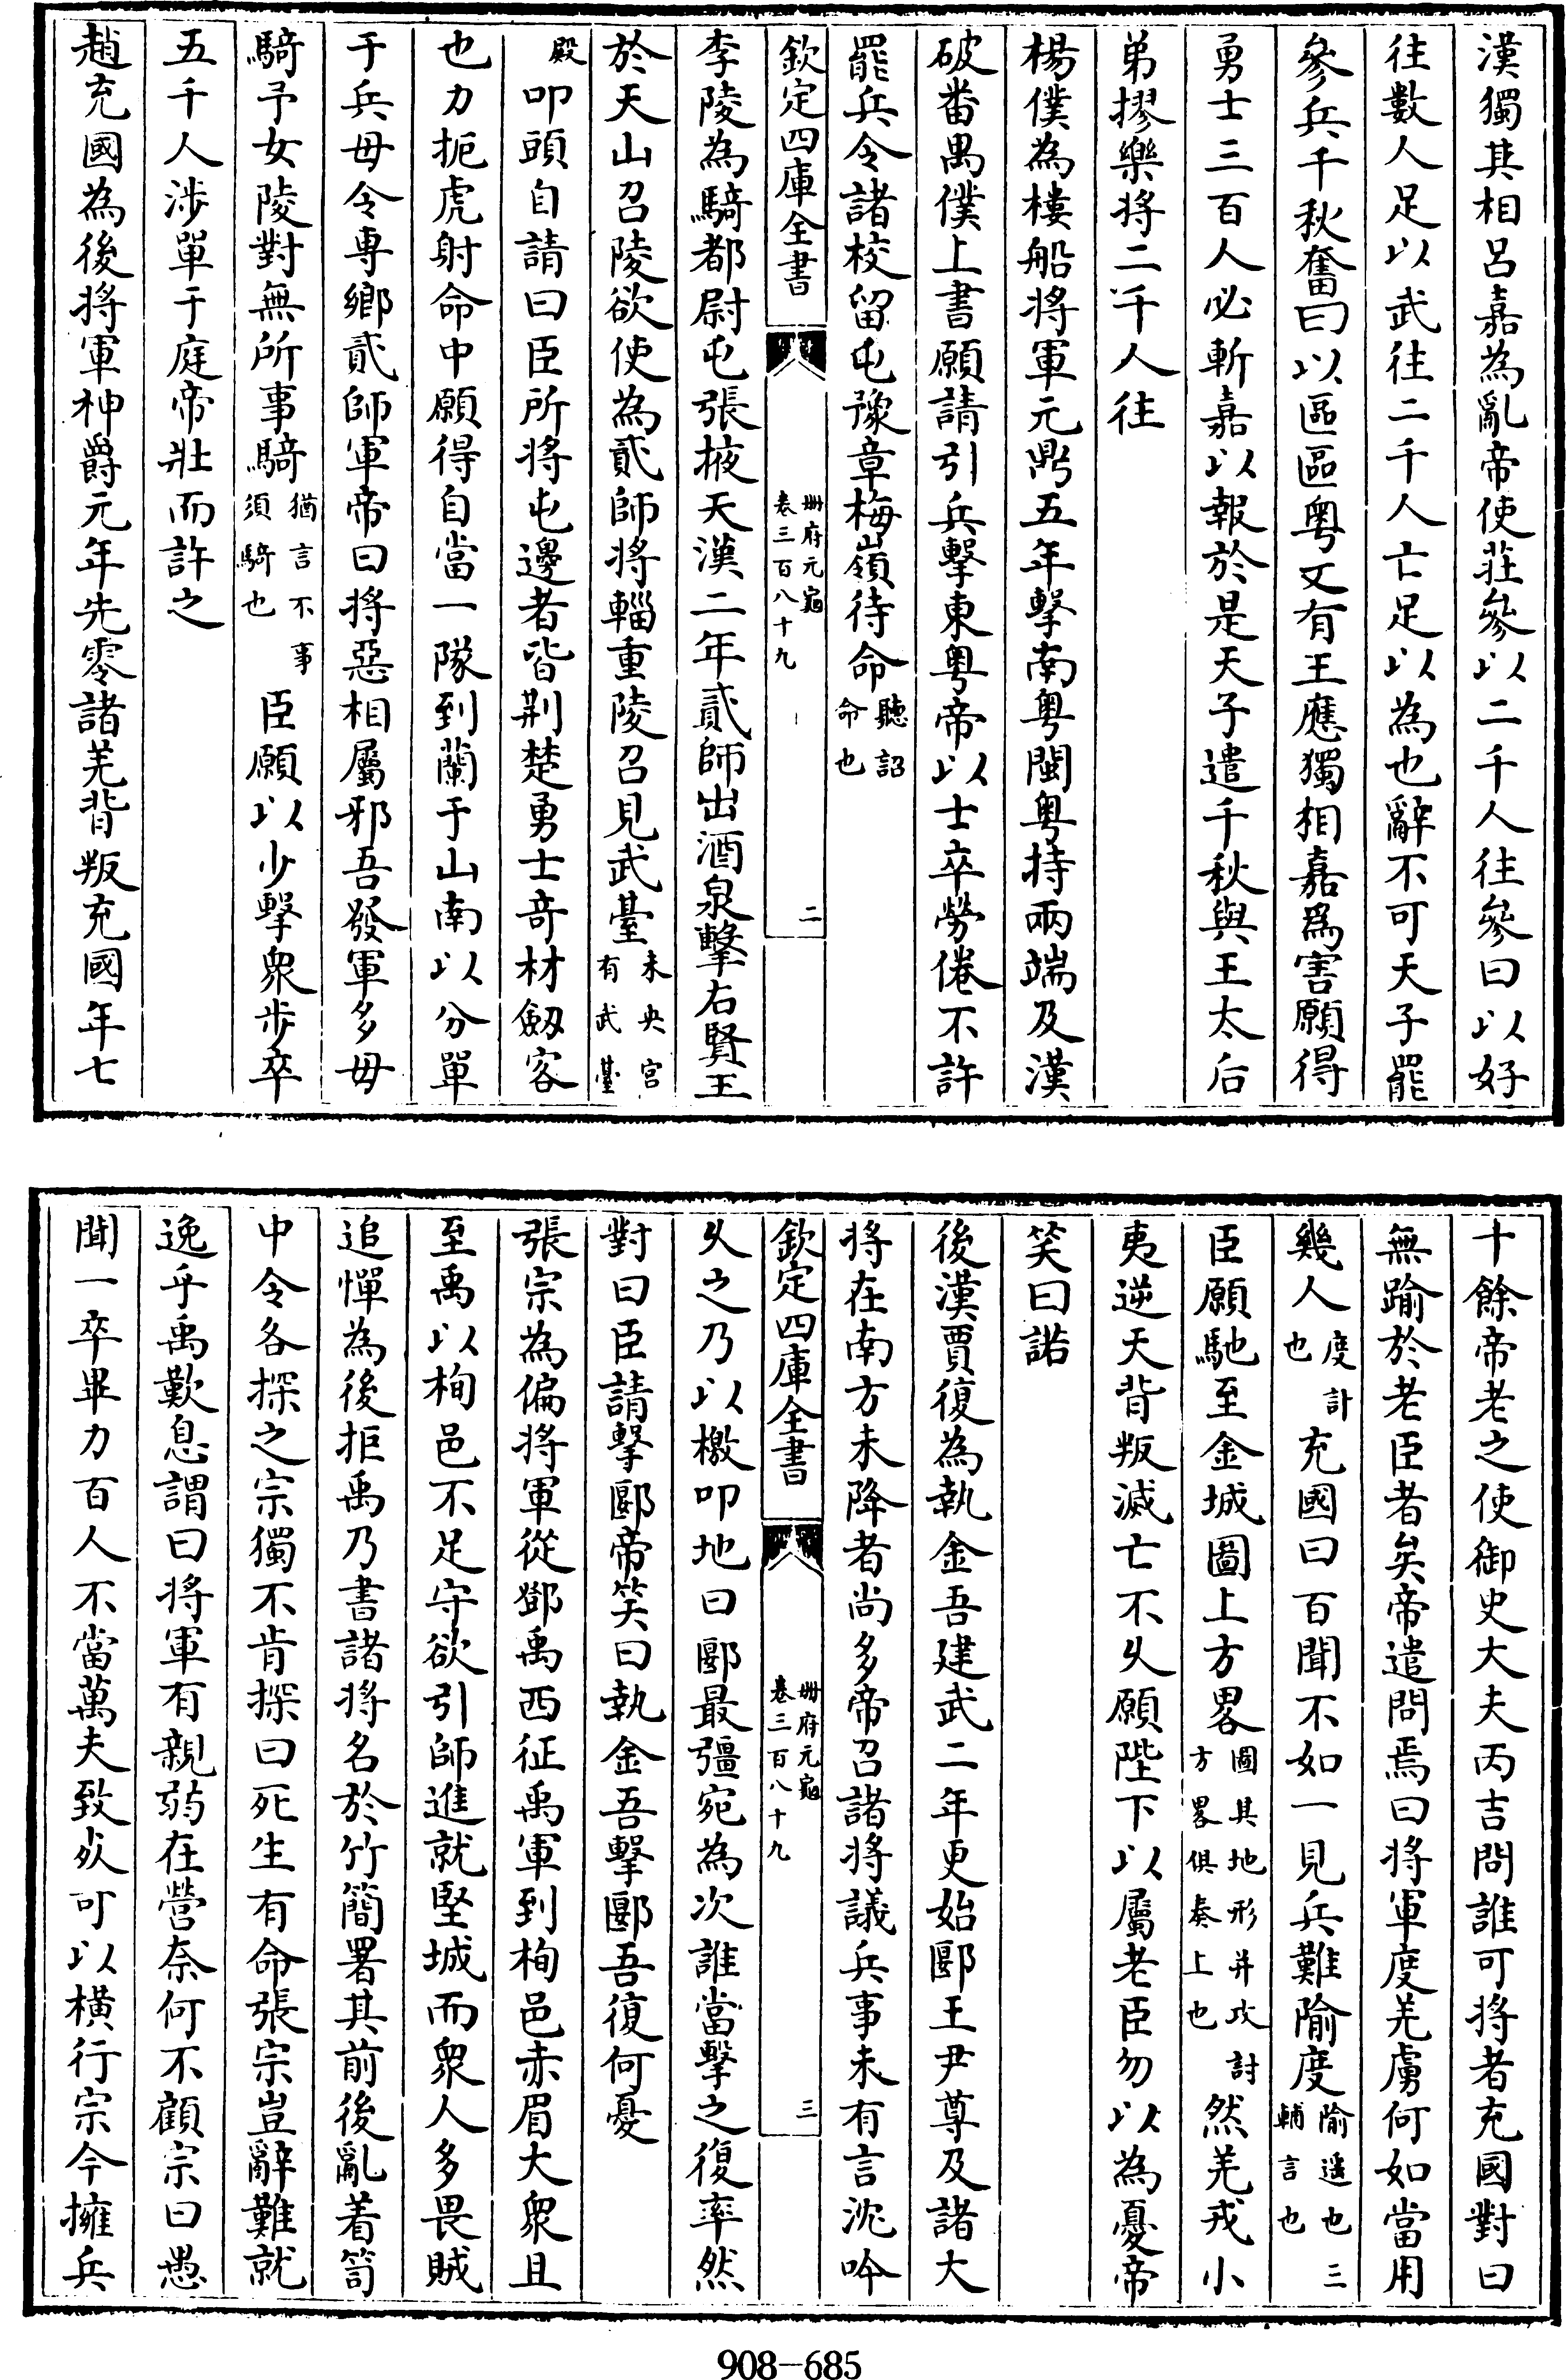 漢獨其相呂嘉為亂帝使莊參以二千人往參曰以好
往數人足以武往二千人亡足以為也辭不可天子罷
參兵千秋奮曰以區區粵又有王應獨相嘉爲害願得
勇士三百人必斬嘉以報於是天子遣千秋與王太后
弟摎樂將二千人往
楊僕為樓船將軍元鼎五年擊南粵閩粵持兩端及漢
破番禺僕上書願請引兵擊東粵帝以士卒勞倦不許
罷兵令諸校留屯豫章梅嶺待命聽詔命也
欽定四庫全書 冊府元龜卷三百八十九 二
李陵為騎都尉屯張掖天漢二年貳師出酒泉擊右賢王
於天山召陵欲使為貳師將輜重陵召見武臺未央宮有武臺
殿叩頭自請曰臣所將屯邊者皆荆楚勇士奇材劔客
也力扼虎射命中願得自當一隊到蘭于山南以分單
于兵毋令専鄉貳師軍帝曰將惡相屬邪吾發軍多毋
騎予女陵對無所事騎猶言不事須騎也臣願以少擊衆步卒
五千人涉單于庭帝壯而許之
趙充國為後將軍神爵元年先零諸羌背叛充國年七
十餘帝老之使御史大夫丙吉問誰可將者充國對曰
無踰於老臣者矣帝遣問焉曰將軍度羌虜何如當用
幾人度計也充國曰百聞不如一見兵難隃度隃遥也三輔言也
臣願馳至金城圖上方畧圖其地形并攻討方畧俱奏上也然羌戎小
夷逆天背叛滅亡不乆願陛下以屬老臣勿以為憂帝
笑曰諾
後漢賈復為執金吾建武二年更始郾王尹尊及諸大
將在南方未降者尚多帝召諸將議兵事未有言沈吟
乆之乃以檄叩地曰郾最彊宛為次誰當擊之復率然
對曰臣請擊郾帝笑曰執金吾擊郾吾復何憂
欽定四庫全書 冊府元龜卷三百八十九 三
張宗為偏將軍從鄧禹西征禹軍到栒邑赤眉大衆且
至禹以栒邑不足守欲引師進就堅城而衆人多畏賊
追憚為後拒禹乃書諸將名於竹簡署其前後亂着笥
中令各探之宗獨不肯探曰死生有命張宗豈辭難就
逸乎禹歎息謂曰將軍有親弱在營奈何不顧宗曰愚
聞一卒畢力百人不當萬夫致死可以横行宗今擁兵
908-685